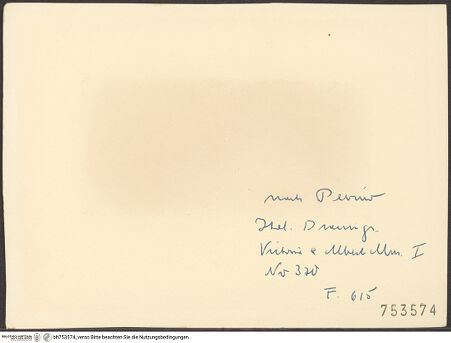 nach Perino
Ital. Drawings
Victoria & Albert Mus. I
No 370
F. 615
753574
bh753574, verso Bitte beachten Sie die Nutzungsbedingungen.